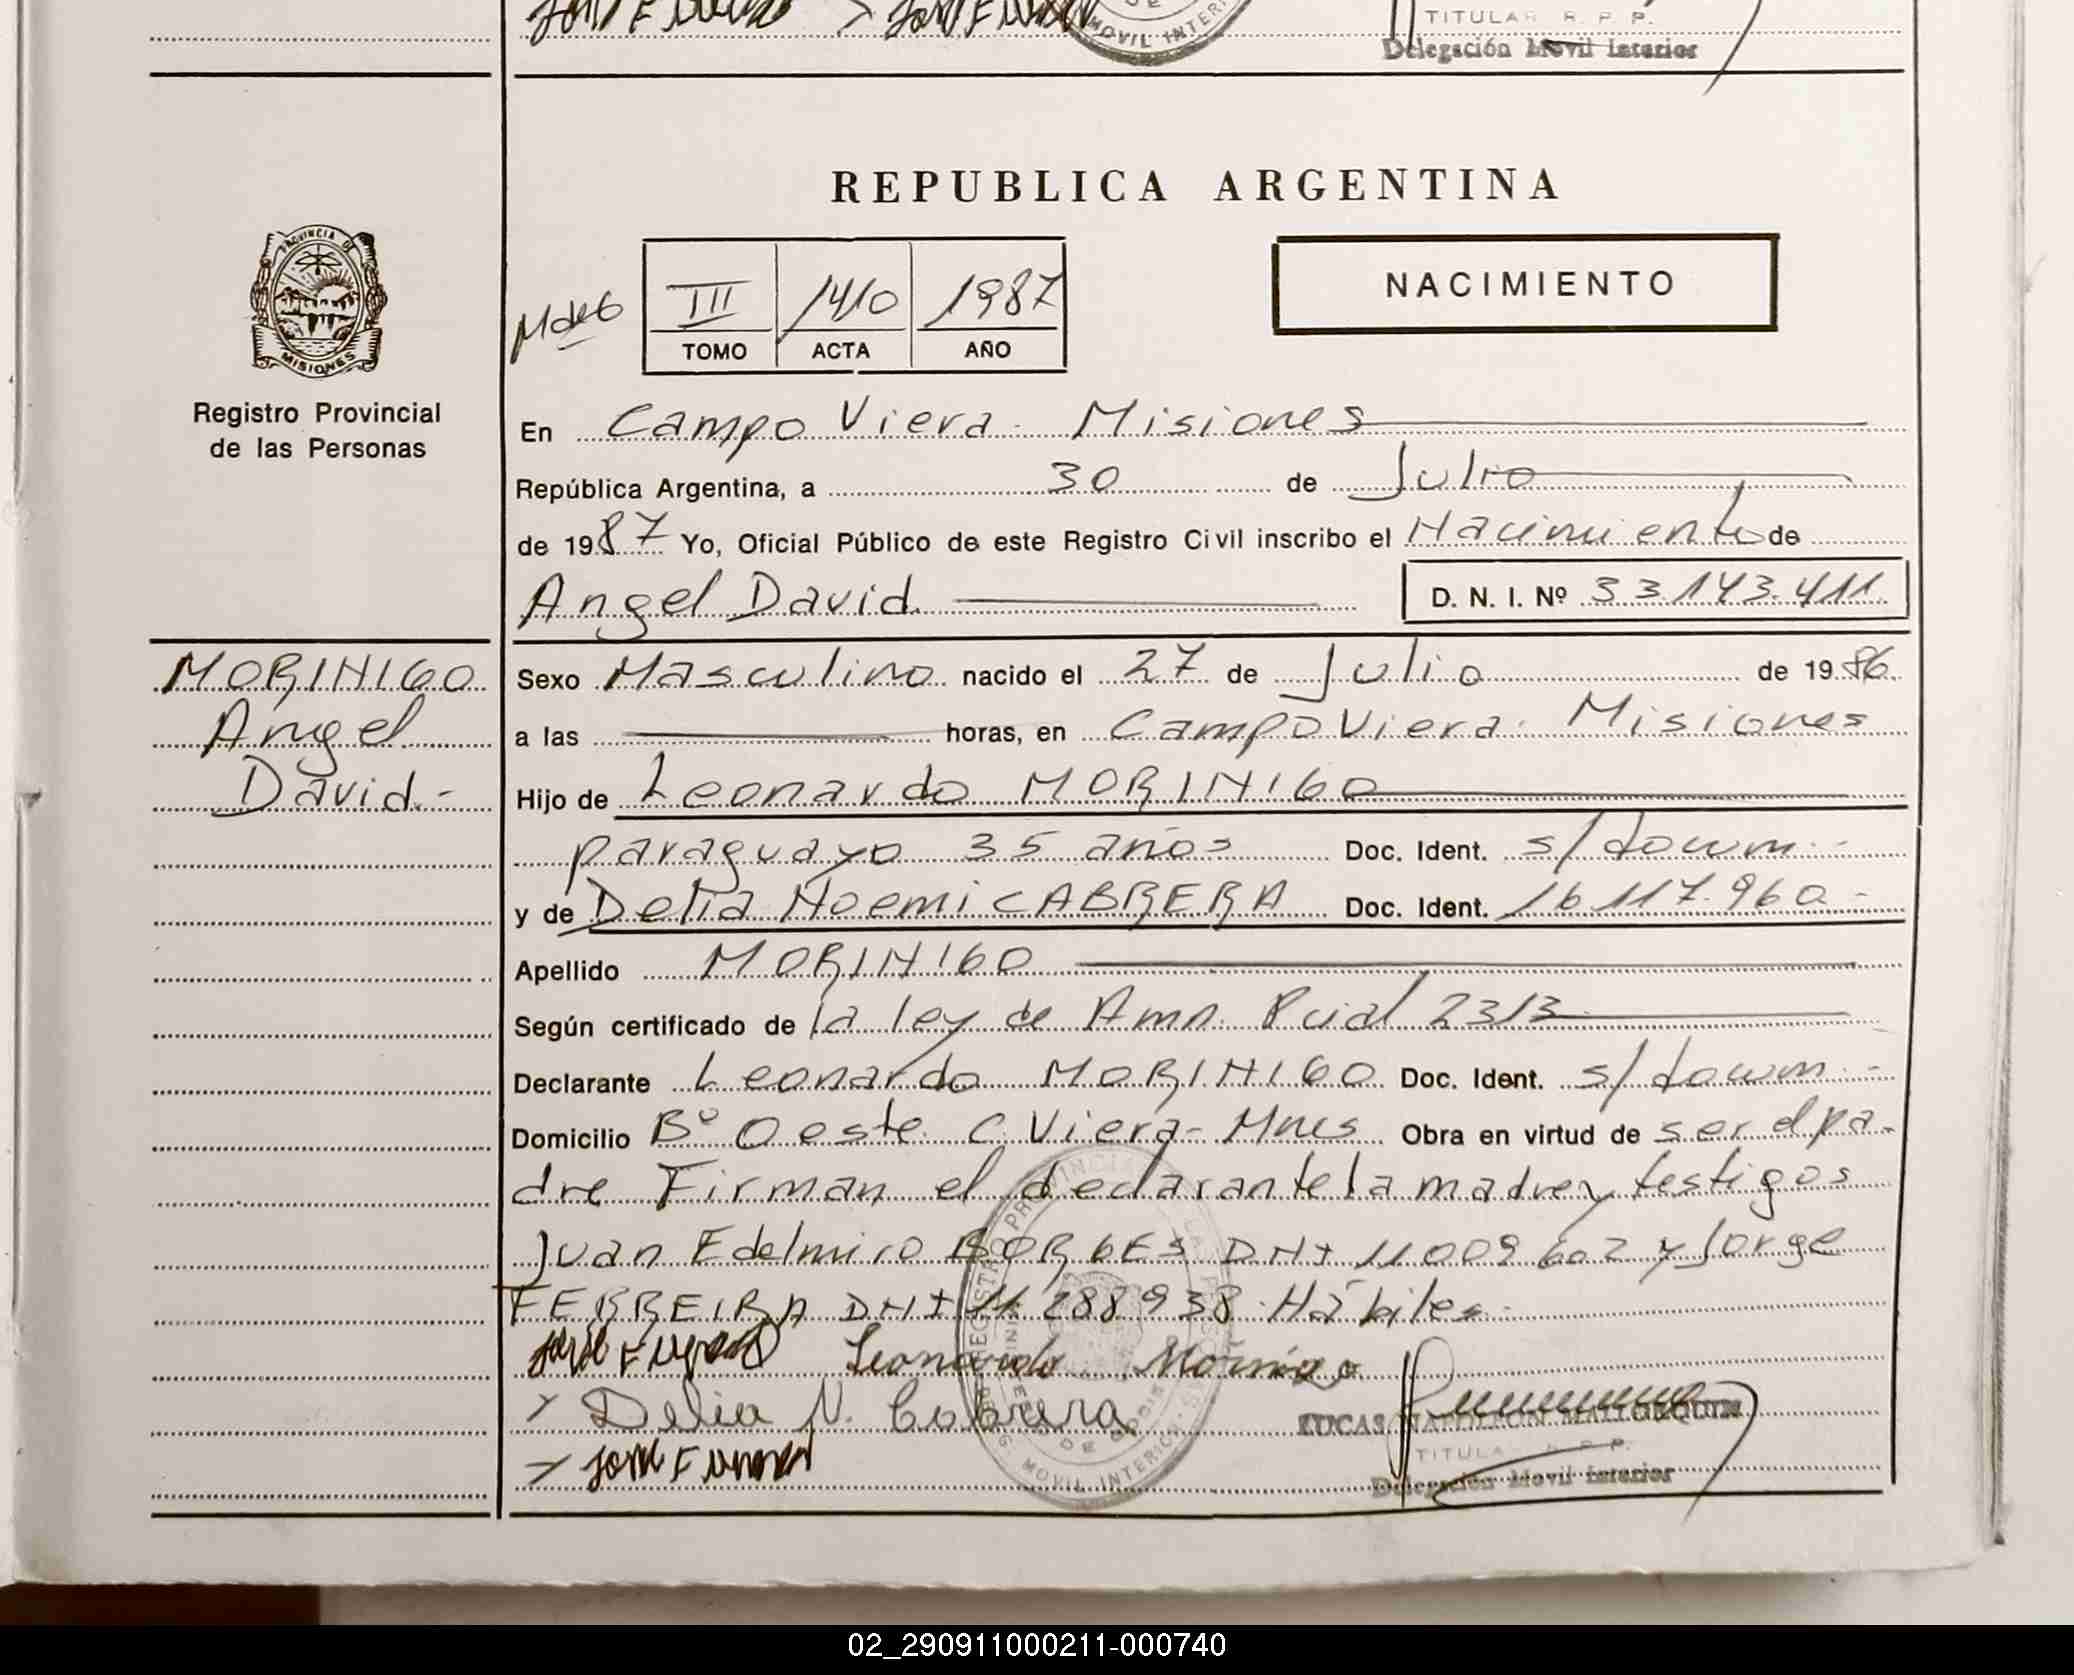 TITULAR R. P. P.
MOVIL INTERI
Delegación Movil Interior
REPUBLICA ARGENTINA
PROVINCIA DE
MISIONES
Registro Provincial
de las Personas
III 1410 1987
TOMO ACTA AÑO
NACIMIENTO
En Campo Viera - Misiones
República Argentina, a 30 de Julio
de 1987 Yo, Oficial Público de este Registro Civil inscribo el Nacimiento de
Angel David
D. N. I. Nº 33.143.411
MORINIGO
Angel
David.-
Sexo Masculino nacido el 27 de Julio de 1986.
a las horas, en Campo Viera - Misiones
Hijo de Leonardo MORINIGO
paraguayo 35 años Doc. Ident. s/docum.-
y de Delia Noemi CABRERA Doc. Ident. 16.117.960.-
Apellido MORINIGO
Según certificado de la ley de Amn. Pcial 2313
Declarante Leonardo MORINIGO Doc. Ident. s/docum.-
Domicilio Bº Oeste C. Viera - Mnes Obra en virtud de ser el pa-
dre Firman el declarante la madre y testigos
Juan Edelmiro BORGES DNI 11009602 y Jorge
FERREIRA DNI 11288938 Hábiles.
Leonardo Morinigo
Delia N. Cabrera
LUCAS NAPOLEON MALLORQUIN
TITULAR R. P. P.
Delegación Movil Interior
MOVIL INTERIOR
02_290911000211-000740